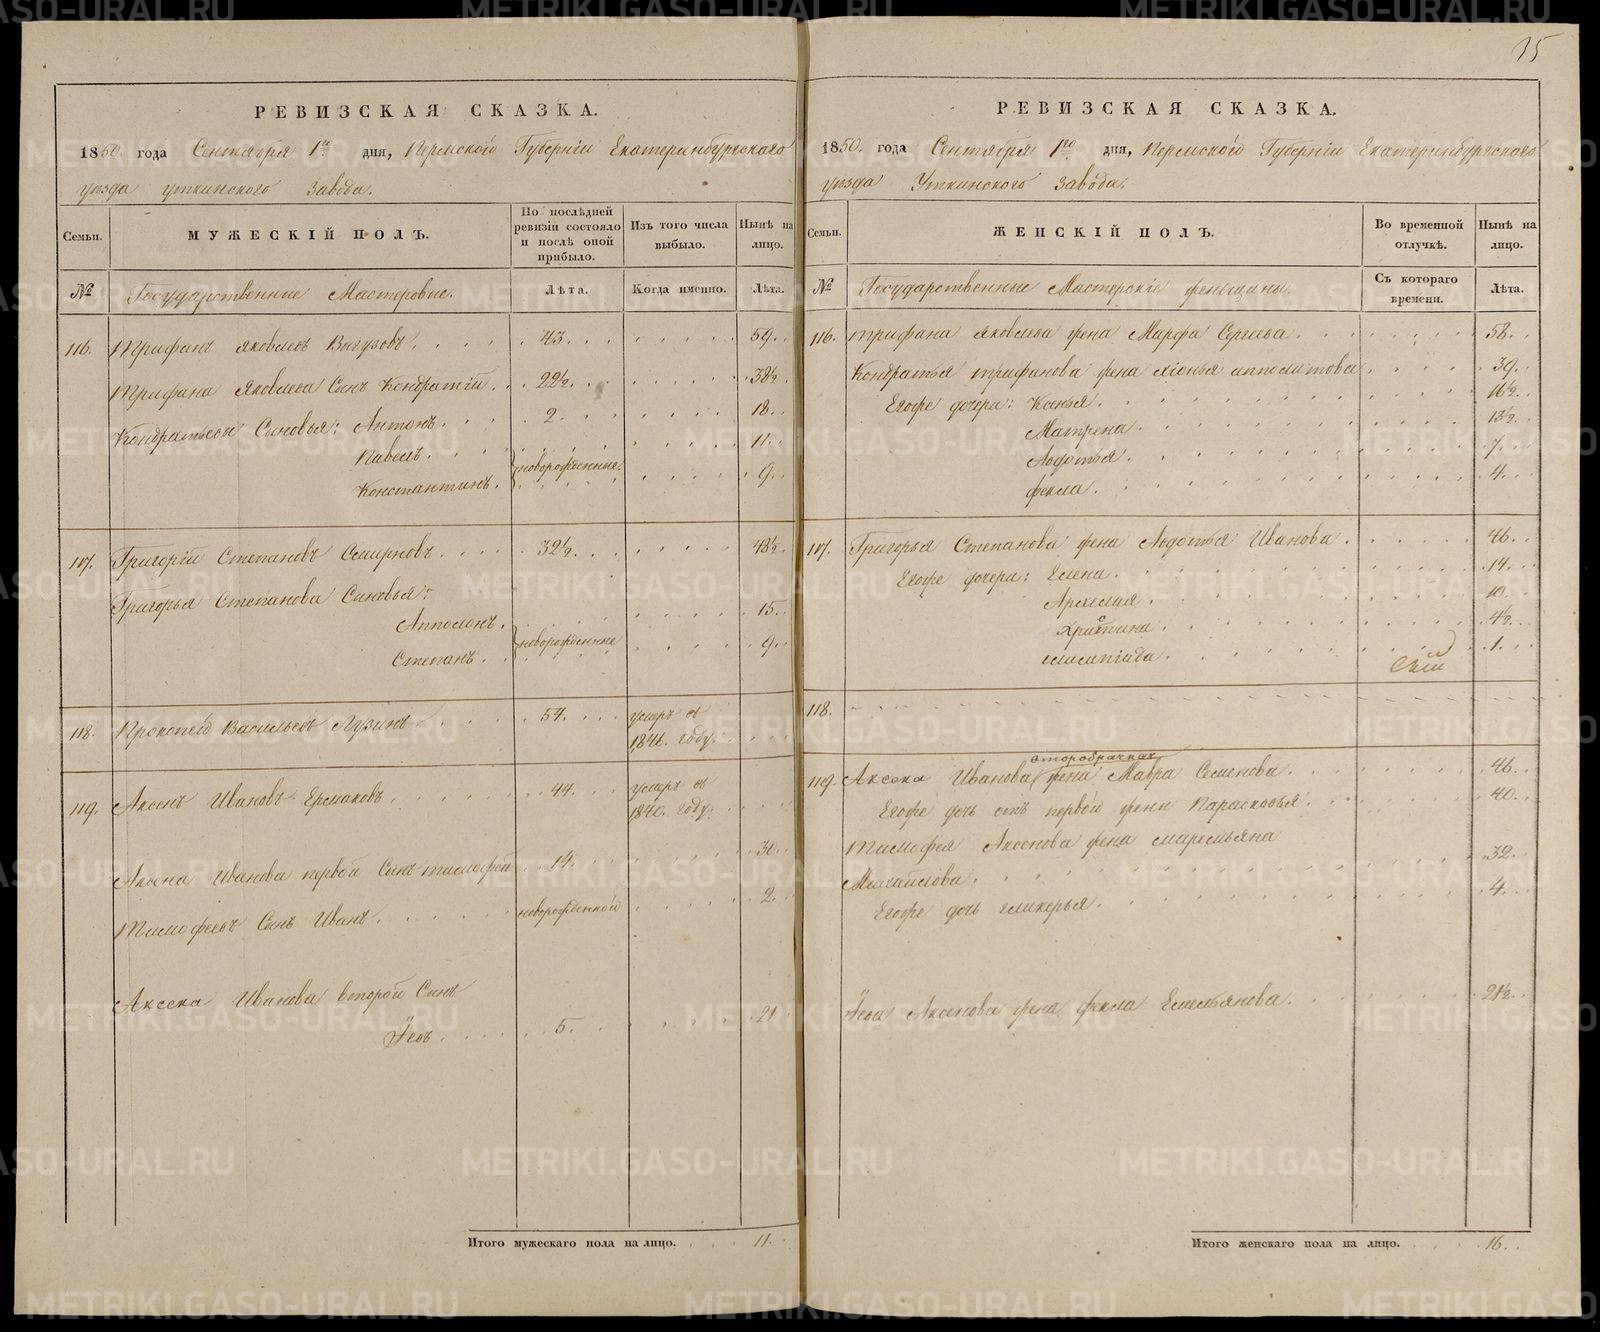 15
РЕВИЗСКАЯ СКАЗКА.
1850. года Сентября 1го дня, Пермской Губерніи Екатеринбургскаго
уѣзда Уткинского Завода.
Семьи.
МУЖЕСКІЙ ПОЛЪ.
По послѣдней ревизіи состояло и послѣ оной прибыло.
Изъ того числа выбыло.
Нынѣ на лицо.
№
Государственные Мастеровые.
Лѣта.
Когда именно.
Лѣта.
116. Трифанъ Яковлевъ 43. 59.
Трифана Яковлева Сынъ Кондратій. 22½. 38½.
Кондратьевы Сыновья: Антонъ. 2. 18.
Павелъ. 11.
новорожденные.
Константинъ. 9.
117. Григорій Степановъ Смирновъ. 32½. 48½.
Григорья Степанова Сыновья:
Апполонъ. 15.
новорожденные
Степанъ. 9.
118. Прокопей Васильевъ Лузинъ 54. умеръ въ
1846. году.
119. Аксенъ Ивановъ Ермаковъ. 44. умеръ въ
1840. году.
Аксена Иванова первой Сынъ Тимофей 14. 30.
Тимофеевъ Сынъ Иванъ. новорожденной 2.
Аксена Иванова второй Сынъ
Іевъ. 5. 21.
Итого мужескаго пола на лицо. 11.
РЕВИЗСКАЯ СКАЗКА.
1850. года Сентября 1го дня, Пермской Губерніи Екатеринбургскаго
уѣзда Уткинского Завода.
Семьи.
ЖЕНСКІЙ ПОЛЪ.
Во временной отлучкѣ.
Нынѣ на лицо.
№
Государственные Мастерскіе женьщины.
Съ котораго времени.
Лѣта.
116. Трифана Яковлева жена Марфа Сергеева. 58.
Кондратья Трифанова жена Хіонья Апполитова 39.
Егоже дочери: Ксенья. 16½.
Матрена. 13½.
Авдотья. 7.
Фекла. 4.
117. Григорья Степанова жена Авдотья Иванова. 46.
Егоже дочери: Елена. 14.
10.
Христина. 4½.
Олимпіада. 1.
118.
второбрачная
119. Аксена Иванова жена Мавра Семенова. 46.
Егоже дочь отъ первой жены Парасковья. 40.
Тимофея Аксенова жена Маремьяна
Михайлова. 32.
Егоже дочь Гликерья. 4.
Іева Аксенова жена Фекла Емельянова. 21½.
Итого женскаго пола на лицо. 16.
METRIKI.GASO-URAL.RU